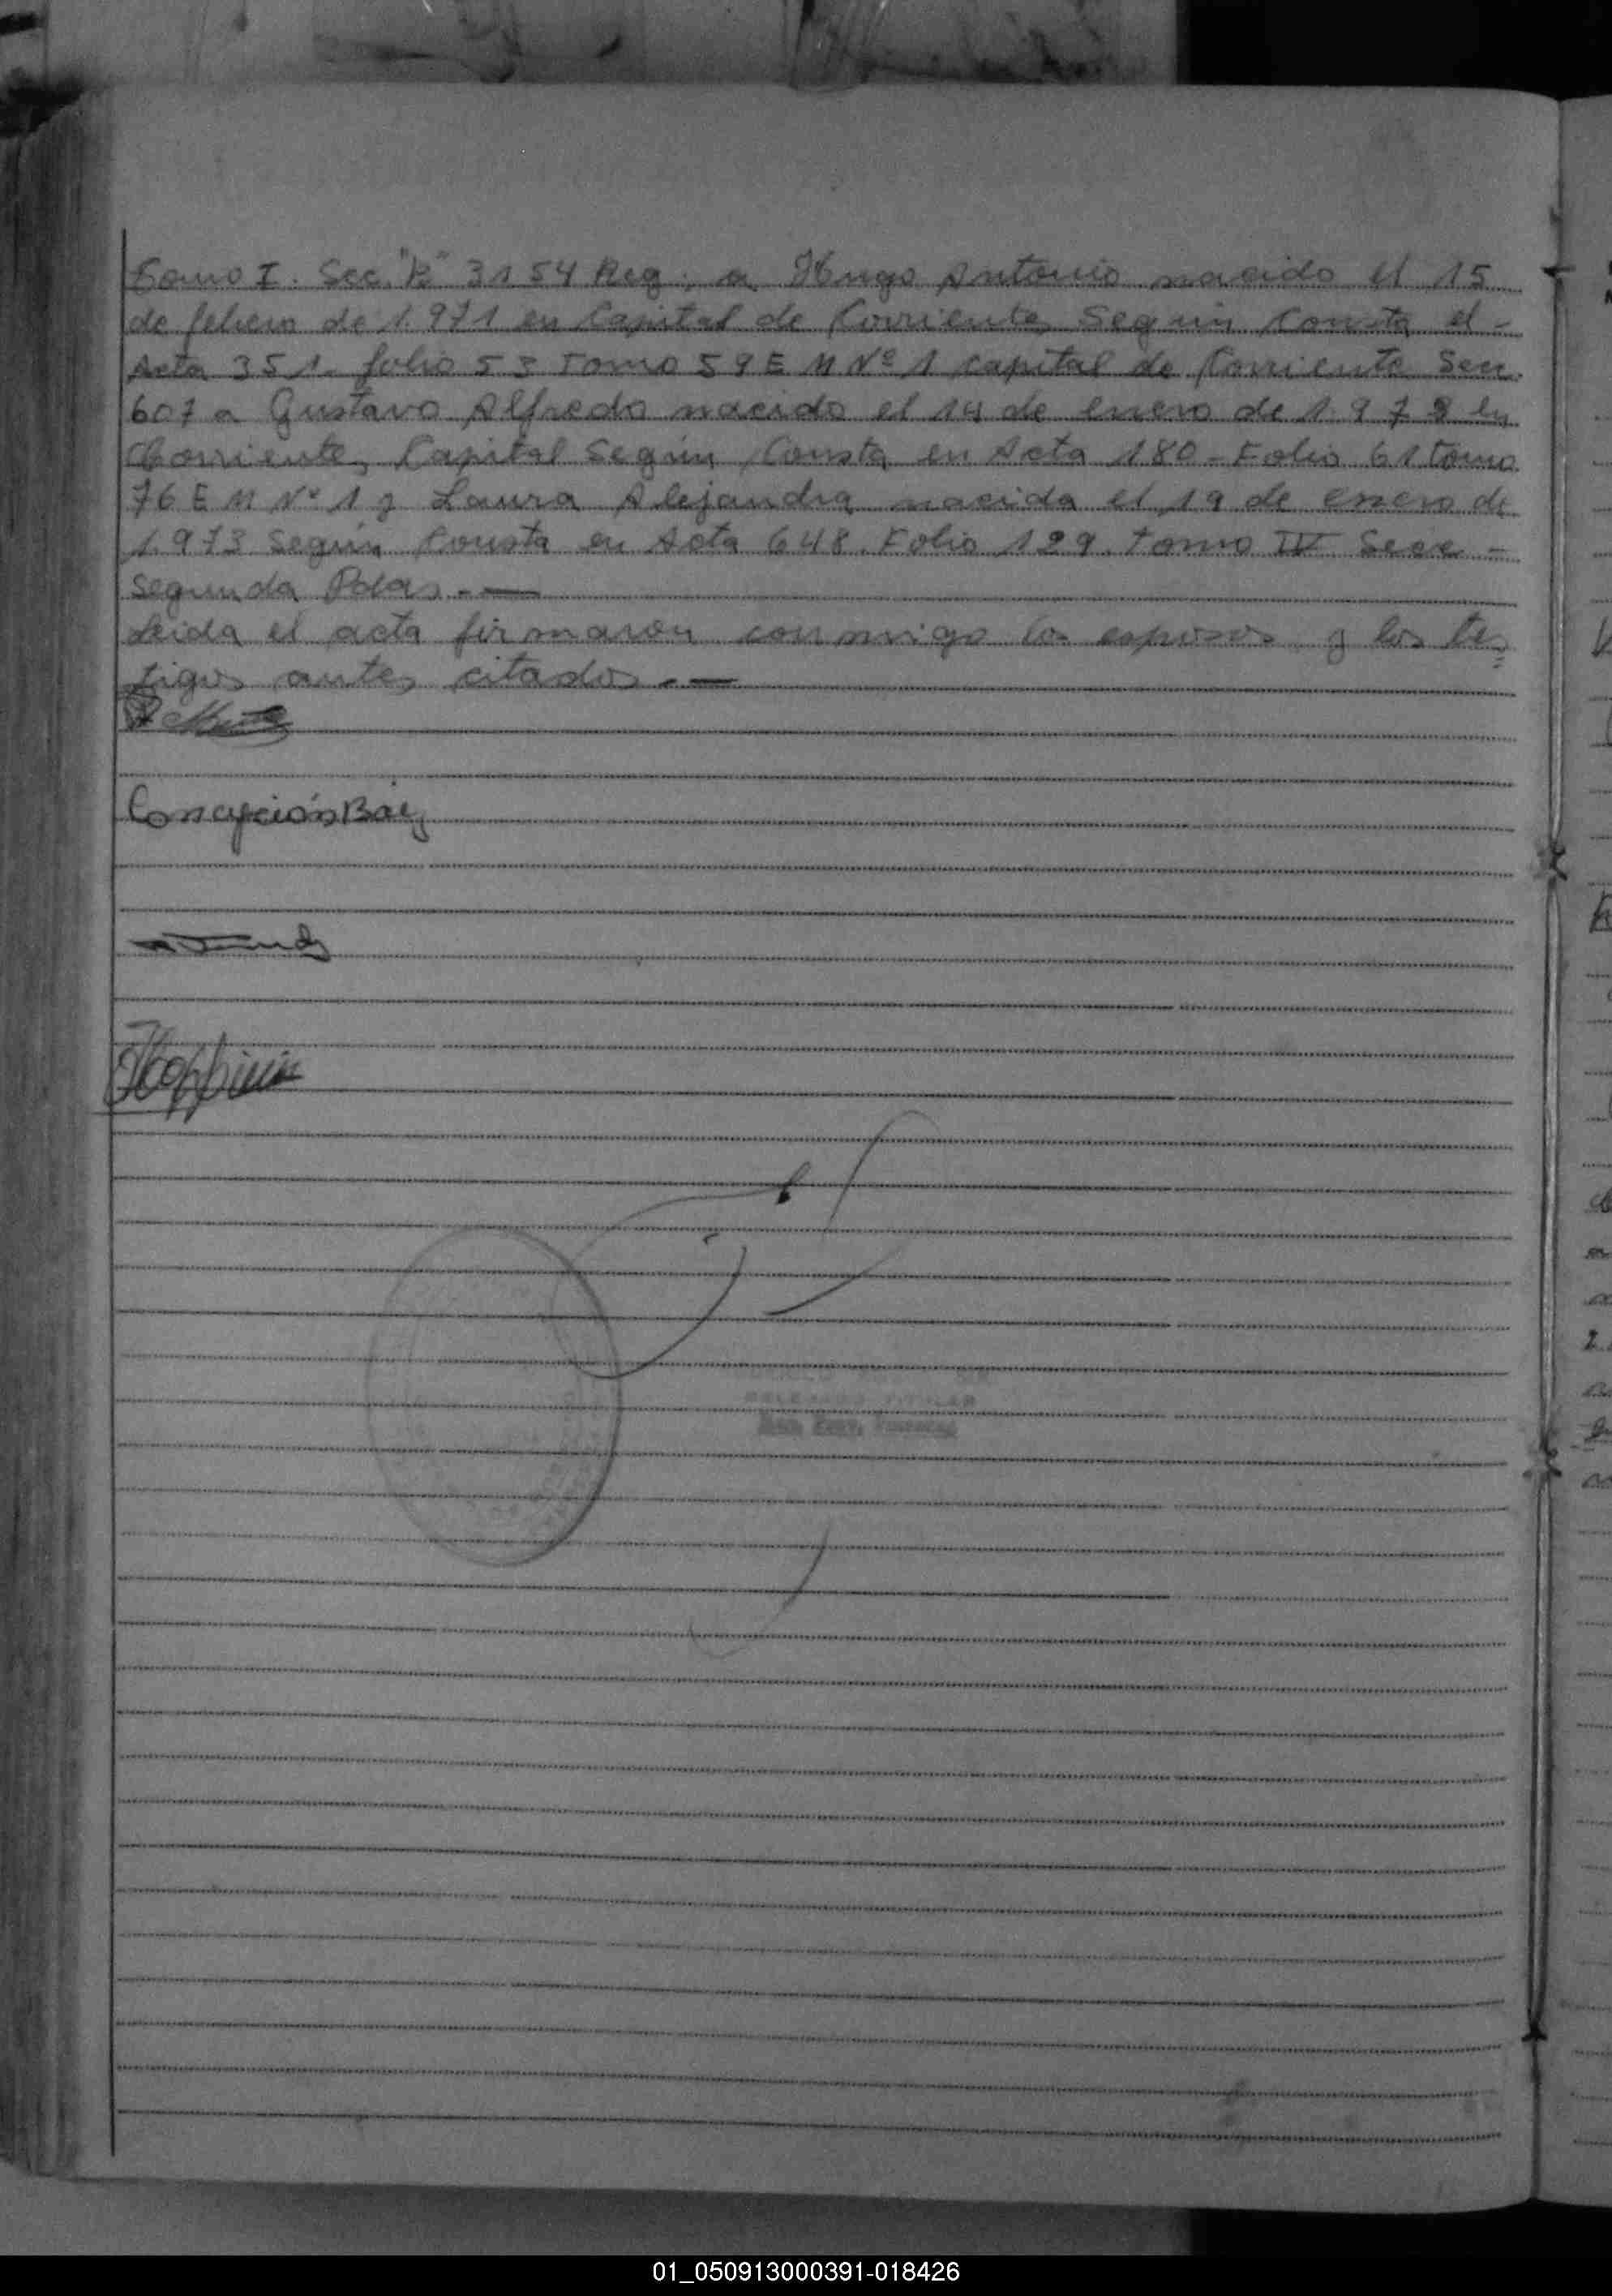 Tomo I. Sec. "B" 3154 Reg. a Hugo Antonio nacido el 15
de febrero de 1.971 en Capital de Corriente, Según Consta el -
Acta 351. folio 53 Tomo 59 E M Nº 1 Capital de Corriente Secc.
607 a Gustavo Alfredo nacido el 14 de enero de 1.979 en
Corriente, Capital Según Consta en Acta 180 - Folio 61 tomo
76 E M Nº 1 y Laura Alejandra nacida el 19 de enero de
1.973 Según Consta en Acta 648. Folio 129. Tomo IV Secc -
Segunda Pdas. - —
Leida el acta firmaron conmigo los esposos y los tes=
tigos antes citados. - —
Concepción Báez
DELEGADO TITULAR
01_050913000391-018426